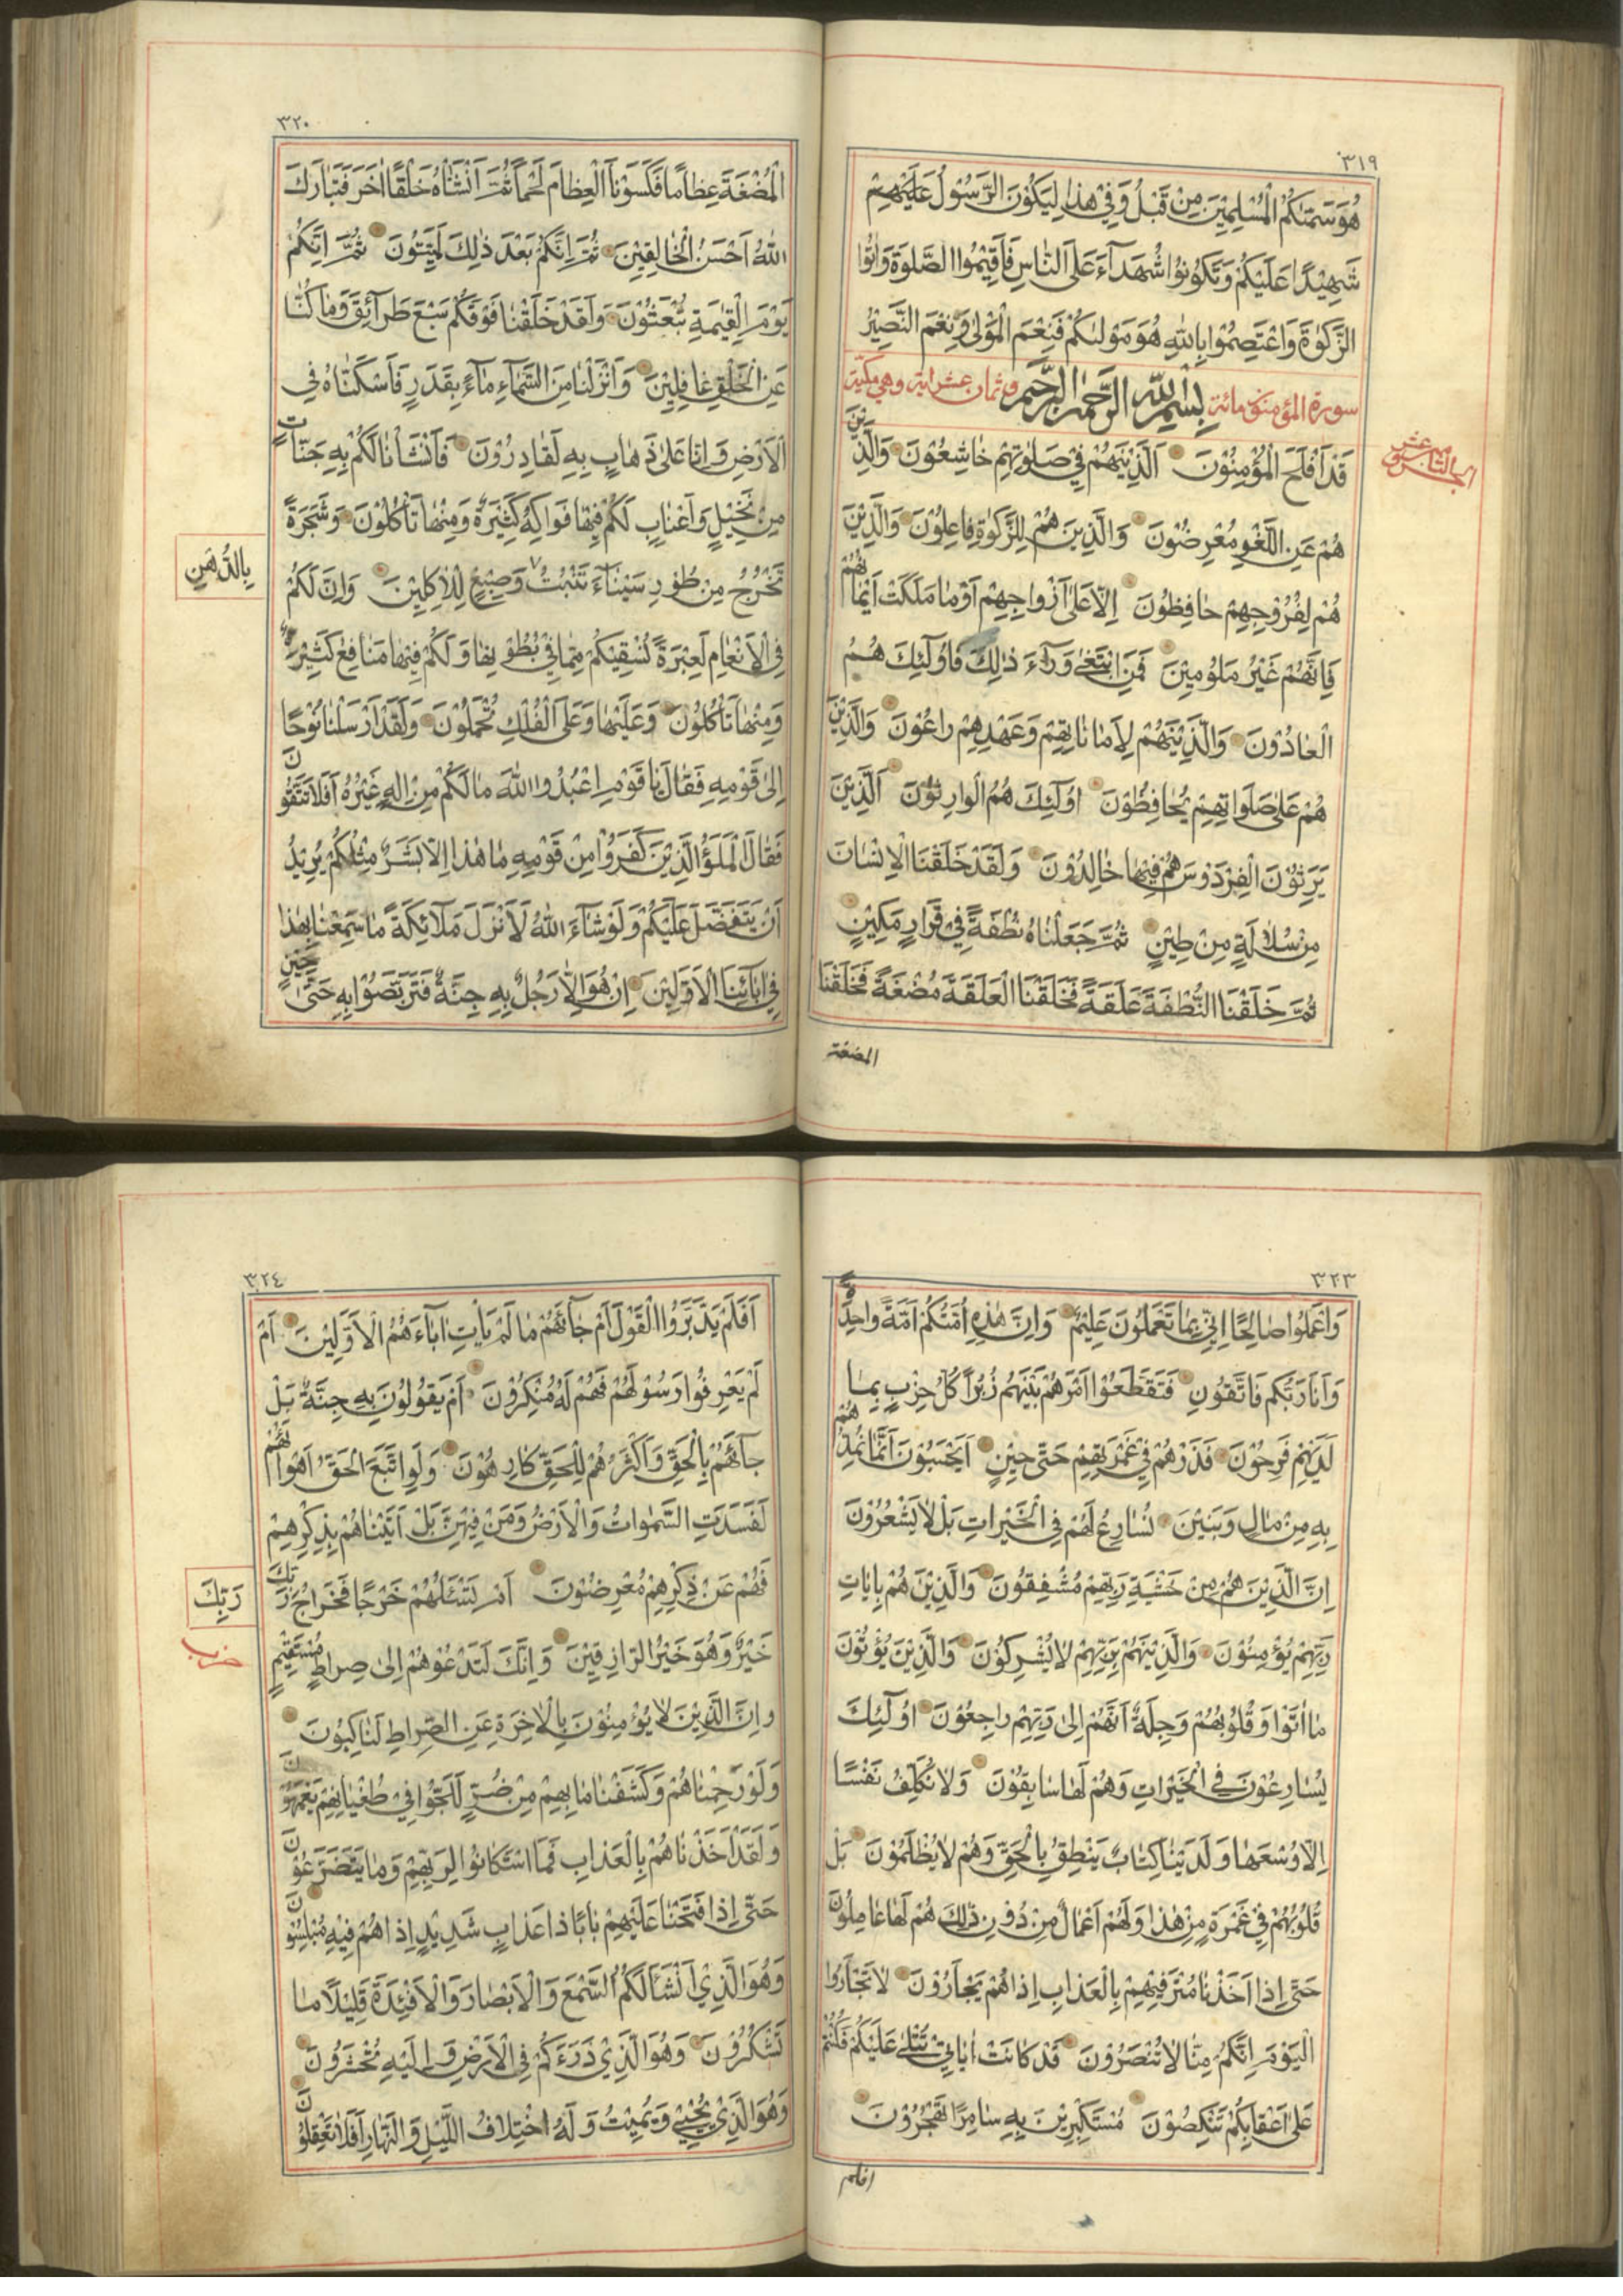 ٣١٩
هُوَ سَمّٰىكُمُ الْمُسْلِمِيْنَ مِنْ قَبْلُ وَفِيْ هٰذَا لِيَكُوْنَ الرَّسُوْلُ عَلَيْهِمْ
شَهِيْدًا عَلَيْكُمْ وَتَكُوْنُوْا شُهَدَآءَ عَلَى النَّاسِ فَاَقِيْمُوا الصَّلٰوةَ وَاٰتُوا
الزَّكٰوةَ وَاعْتَصِمُوْا بِاللّٰهِ هُوَ مَوْلٰىكُمْ فَنِعْمَ الْمَوْلٰى وَنِعْمَ النَّصِيْرُ
سورة المؤمنون مائة بِسْمِ اللّٰهِ الرَّحْمٰنِ الرَّحِيْمِ وثمان عشر اية وهي مكية
قَدْ اَفْلَحَ الْمُؤْمِنُوْنَ اَلَّذِيْنَ هُمْ فِيْ صَلٰوتِهِمْ خَاشِعُوْنَ وَالَّذِيْنَ
الجزء الثامن عشر
هُمْ عَنِ اللَّغْوِ مُعْرِضُوْنَ وَالَّذِيْنَ هُمْ لِلزَّكٰوةِ فَاعِلُوْنَ وَالَّذِيْنَ
هُمْ لِفُرُوْجِهِمْ حَافِظُوْنَ اِلَّا عَلٰى اَزْوَاجِهِمْ اَوْ مَا مَلَكَتْ اَيْمَانُهُمْ
فَاِنَّهُمْ غَيْرُ مَلُوْمِيْنَ فَمَنِ ابْتَغٰى وَرَآءَ ذٰلِكَ فَاُولٰٓئِكَ هُمُ
الْعَادُوْنَ وَالَّذِيْنَ هُمْ لِاَمَانَاتِهِمْ وَعَهْدِهِمْ رَاعُوْنَ وَالَّذِيْنَ
هُمْ عَلٰى صَلَوَاتِهِمْ يُحَافِظُوْنَ اُولٰٓئِكَ هُمُ الْوَارِثُوْنَ اَلَّذِيْنَ
يَرِثُوْنَ الْفِرْدَوْسَ هُمْ فِيْهَا خَالِدُوْنَ وَلَقَدْ خَلَقْنَا الْاِنْسَانَ
مِنْ سُلَالَةٍ مِنْ طِيْنٍ ثُمَّ جَعَلْنَاهُ نُطْفَةً فِيْ قَرَارٍ مَكِيْنٍ
ثُمَّ خَلَقْنَا النُّطْفَةَ عَلَقَةً فَخَلَقْنَا الْعَلَقَةَ مُضْغَةً فَخَلَقْنَا
المضغة
٣٢٠
الْمُضْغَةَ عِظَامًا فَكَسَوْنَا الْعِظَامَ لَحْمًا ثُمَّ اَنْشَاْنَاهُ خَلْقًا اٰخَرَ فَتَبَارَكَ
اللّٰهُ اَحْسَنُ الْخَالِقِيْنَ ثُمَّ اِنَّكُمْ بَعْدَ ذٰلِكَ لَمَيِّتُوْنَ ثُمَّ اِنَّكُمْ
يَوْمَ الْقِيٰمَةِ تُبْعَثُوْنَ وَلَقَدْ خَلَقْنَا فَوْقَكُمْ سَبْعَ طَرَآئِقَ وَمَا كُنَّا
عَنِ الْخَلْقِ غَافِلِيْنَ وَاَنْزَلْنَا مِنَ السَّمَآءِ مَآءً بِقَدَرٍ فَاَسْكَنَّاهُ فِي
الْاَرْضِ وَاِنَّا عَلٰى ذَهَابٍ بِهِ لَقَادِرُوْنَ فَاَنْشَاْنَا لَكُمْ بِهِ جَنَّاتٍ
مِنْ نَخِيْلٍ وَاَعْنَابٍ لَكُمْ فِيْهَا فَوَاكِهُ كَثِيْرَةٌ وَمِنْهَا تَاْكُلُوْنَ وَشَجَرَةً
تَخْرُجُ مِنْ طُوْرِ سَيْنَآءَ تَنْبُتُ وَصِبْغٍ لِلْاٰكِلِيْنَ وَاِنَّ لَكُمْ
بِالدُّهْنِ
فِي الْاَنْعَامِ لَعِبْرَةً نُسْقِيْكُمْ مِمَّا فِيْ بُطُوْنِهَا وَلَكُمْ فِيْهَا مَنَافِعُ كَثِيْرَةٌ
وَمِنْهَا تَاْكُلُوْنَ وَعَلَيْهَا وَعَلَى الْفُلْكِ تُحْمَلُوْنَ وَلَقَدْ اَرْسَلْنَا نُوْحًا
اِلٰى قَوْمِهِ فَقَالَ يَا قَوْمِ اعْبُدُوا اللّٰهَ مَا لَكُمْ مِنْ اِلٰهٍ غَيْرُهُ اَفَلَا تَتَّقُوْنَ
فَقَالَ الْمَلَؤُا الَّذِيْنَ كَفَرُوْا مِنْ قَوْمِهِ مَا هٰذَا اِلَّا بَشَرٌ مِثْلُكُمْ يُرِيْدُ
اَنْ يَتَفَضَّلَ عَلَيْكُمْ وَلَوْ شَآءَ اللّٰهُ لَاَنْزَلَ مَلَآئِكَةً مَا سَمِعْنَا بِهٰذَا
فِيْ اٰبَآئِنَا الْاَوَّلِيْنَ اِنْ هُوَ اِلَّا رَجُلٌ بِهِ جِنَّةٌ فَتَرَبَّصُوْا بِهِ حَتّٰى حِيْنٍ
٣٢٣
وَاعْمَلُوْا صَالِحًا اِنِّيْ بِمَا تَعْمَلُوْنَ عَلِيْمٌ وَاِنَّ هٰذِهِ اُمَّتُكُمْ اُمَّةً وَاحِدَةً
وَاَنَا رَبُّكُمْ فَاتَّقُوْنِ فَتَقَطَّعُوْا اَمْرَهُمْ بَيْنَهُمْ زُبُرًا كُلُّ حِزْبٍ بِمَا
لَدَيْهِمْ فَرِحُوْنَ فَذَرْهُمْ فِيْ غَمْرَتِهِمْ حَتّٰى حِيْنٍ اَيَحْسَبُوْنَ اَنَّمَا نُمِدُّهُمْ
بِهِ مِنْ مَالٍ وَبَنِيْنَ نُسَارِعُ لَهُمْ فِي الْخَيْرَاتِ بَلْ لَا يَشْعُرُوْنَ
اِنَّ الَّذِيْنَ هُمْ مِنْ خَشْيَةِ رَبِّهِمْ مُشْفِقُوْنَ وَالَّذِيْنَ هُمْ بِاٰيَاتِ
رَبِّهِمْ يُؤْمِنُوْنَ وَالَّذِيْنَ هُمْ بِرَبِّهِمْ لَا يُشْرِكُوْنَ وَالَّذِيْنَ يُؤْتُوْنَ
مَا اٰتَوْا وَقُلُوْبُهُمْ وَجِلَةٌ اَنَّهُمْ اِلٰى رَبِّهِمْ رَاجِعُوْنَ اُولٰٓئِكَ
يُسَارِعُوْنَ فِي الْخَيْرَاتِ وَهُمْ لَهَا سَابِقُوْنَ وَلَا نُكَلِّفُ نَفْسًا
اِلَّا وُسْعَهَا وَلَدَيْنَا كِتَابٌ يَنْطِقُ بِالْحَقِّ وَهُمْ لَا يُظْلَمُوْنَ بَلْ
قُلُوْبُهُمْ فِيْ غَمْرَةٍ مِنْ هٰذَا وَلَهُمْ اَعْمَالٌ مِنْ دُوْنِ ذٰلِكَ هُمْ لَهَا عَامِلُوْنَ
حَتّٰى اِذَا اَخَذْنَا مُتْرَفِيْهِمْ بِالْعَذَابِ اِذَا هُمْ يَجْاَرُوْنَ لَا تَجْاَرُوا
الْيَوْمَ اِنَّكُمْ مِنَّا لَا تُنْصَرُوْنَ قَدْ كَانَتْ اٰيَاتِيْ تُتْلٰى عَلَيْكُمْ فَكُنْتُمْ
عَلٰى اَعْقَابِكُمْ تَنْكِصُوْنَ مُسْتَكْبِرِيْنَ بِهِ سَامِرًا تَهْجُرُوْنَ
افلم
٣٢٤
اَفَلَمْ يَدَّبَّرُوا الْقَوْلَ اَمْ جَآءَهُمْ مَا لَمْ يَاْتِ اٰبَآءَهُمُ الْاَوَّلِيْنَ اَمْ
لَمْ يَعْرِفُوْا رَسُوْلَهُمْ فَهُمْ لَهُ مُنْكِرُوْنَ اَمْ يَقُوْلُوْنَ بِهِ جِنَّةٌ بَلْ
جَآءَهُمْ بِالْحَقِّ وَاَكْثَرُهُمْ لِلْحَقِّ كَارِهُوْنَ وَلَوِ اتَّبَعَ الْحَقُّ اَهْوَآءَهُمْ
لَفَسَدَتِ السَّمٰوَاتُ وَالْاَرْضُ وَمَنْ فِيْهِنَّ بَلْ اَتَيْنَاهُمْ بِذِكْرِهِمْ
فَهُمْ عَنْ ذِكْرِهِمْ مُعْرِضُوْنَ اَمْ تَسْئَلُهُمْ خَرْجًا فَخَرَاجُ رَبِّكَ
رَبِّكَ
خَيْرٌ وَهُوَ خَيْرُ الرَّازِقِيْنَ وَاِنَّكَ لَتَدْعُوْهُمْ اِلٰى صِرَاطٍ مُسْتَقِيْمٍ
حزب
وَاِنَّ الَّذِيْنَ لَا يُؤْمِنُوْنَ بِالْاٰخِرَةِ عَنِ الصِّرَاطِ لَنَاكِبُوْنَ
وَلَوْ رَحِمْنَاهُمْ وَكَشَفْنَا مَا بِهِمْ مِنْ ضُرٍّ لَلَجُّوْا فِيْ طُغْيَانِهِمْ يَعْمَهُوْنَ
وَلَقَدْ اَخَذْنَاهُمْ بِالْعَذَابِ فَمَا اسْتَكَانُوْا لِرَبِّهِمْ وَمَا يَتَضَرَّعُوْنَ
حَتّٰى اِذَا فَتَحْنَا عَلَيْهِمْ بَابًا ذَا عَذَابٍ شَدِيْدٍ اِذَا هُمْ فِيْهِ مُبْلِسُوْنَ
وَهُوَ الَّذِيْ اَنْشَاَ لَكُمُ السَّمْعَ وَالْاَبْصَارَ وَالْاَفْئِدَةَ قَلِيْلًا مَا
تَشْكُرُوْنَ وَهُوَ الَّذِيْ ذَرَءَكُمْ فِي الْاَرْضِ وَاِلَيْهِ تُحْشَرُوْنَ
وَهُوَ الَّذِيْ يُحْيِيْ وَيُمِيْتُ وَلَهُ اخْتِلَافُ اللَّيْلِ وَالنَّهَارِ اَفَلَا تَعْقِلُوْنَ